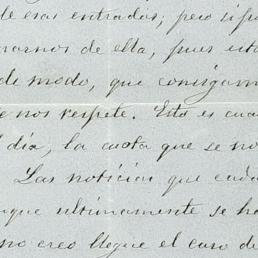 de esas entradas; pero si
varnos de ella, pues est
de modo, que consigam
e nos respete. Esto es cua
día, la cuota que se no
Las noticias que cada
nque ultimamente se ha
no creo llegue el caso de